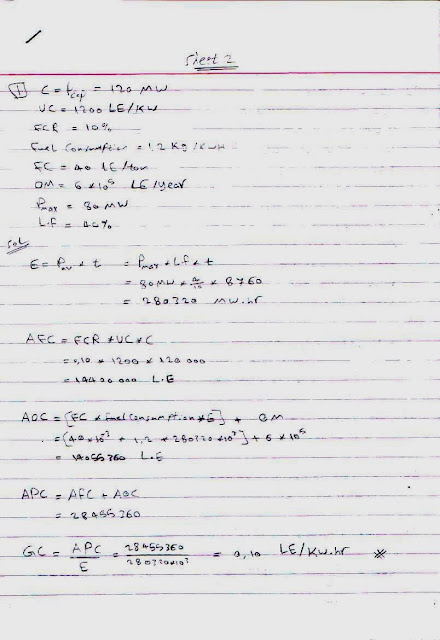 Sheet 2
1 C = Pcap = 120 MW
UC = 1200 LE/KW
FCR = 10%
Fuel Consumption = 1,2 Kg/Kwh
FC = 40 LE/ton
OM = 6 * 10⁵ LE/year
Pmax = 80 MW
L.F = 40%
Sol
E = Pav * t = Pmax * Lf * t
= 80 MW * 4/10 * 8760
= 280320 MW.hr
AFC = FCR * UC * C
= 0,10 * 1200 * 120 000
= 14400 000 L.E
AOC = [FC * Fuel Consumption * E] + OM
= [40*10³ * 1,2 * 280320*10³] + 6*10⁵
= 14055360 L.E
APC = AFC + AOC
= 28455360
GC = APC/E = 28455360/280320*10³ = 0,10 LE/Kw.hr *